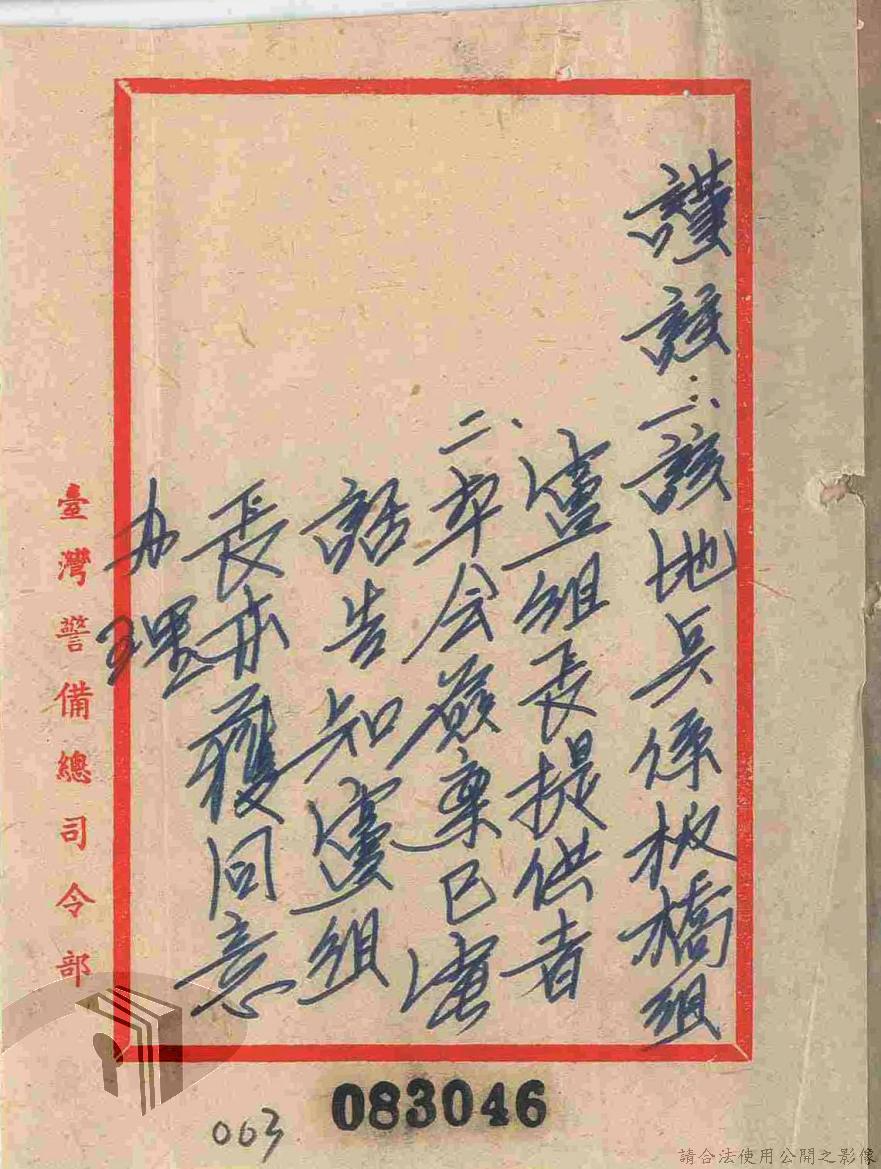 謹：一、該地點係板橋組
盧組長提供者
二、本会簽案已電
話告知盧組
長亦獲同意
办理
臺灣警備總司令部
083046
063
請合法使用公開之影像